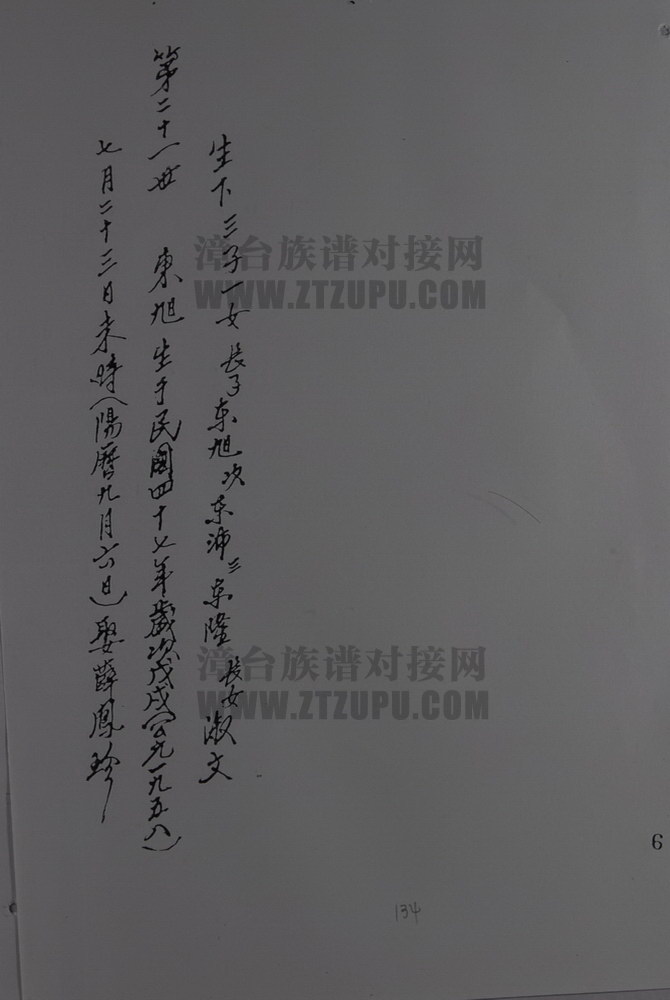 生下三子一女長子东旭次东沛三东隆長女淑文
第二十一世 東旭生于民國四十七年歲次戊戌(公元一九五八)
七月二十三日未時(陽曆九月六日)娶薛鳳珍
漳台族谱对接网
WWW.ZTZUPU.COM
漳台族谱对接网
WWW.ZTZUPU.COM
6
134